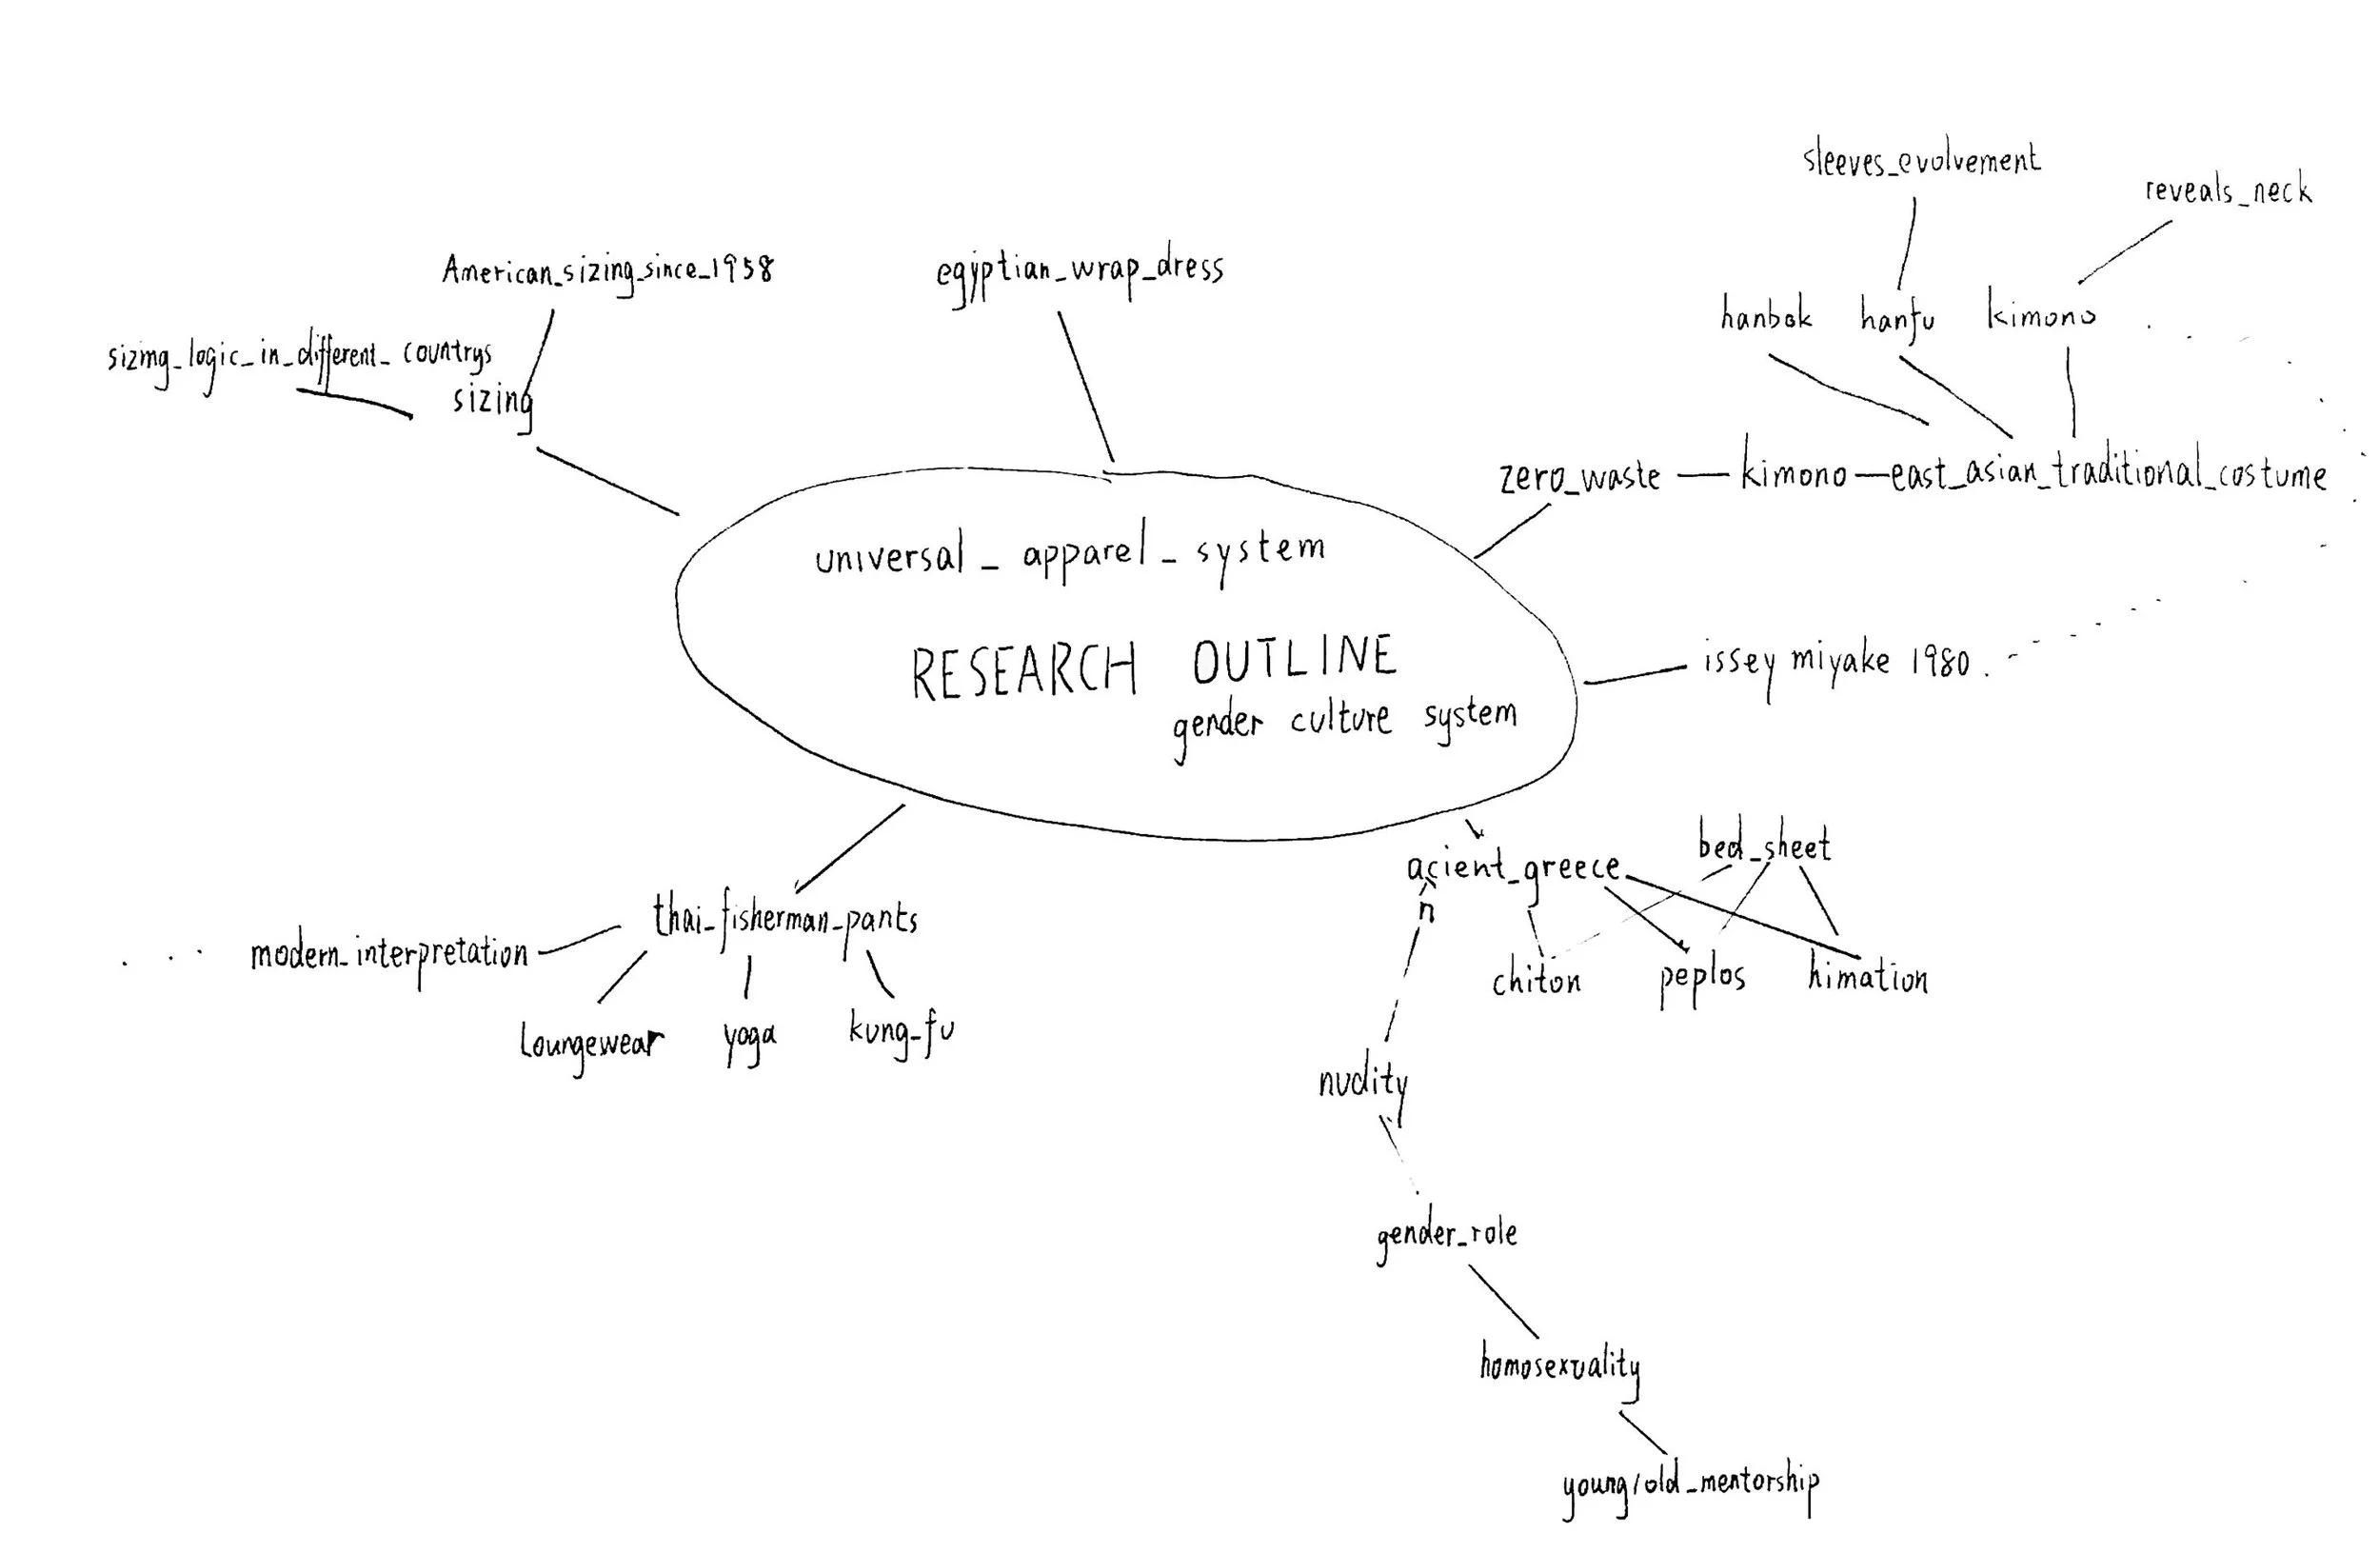 sleeves_evolvement
reveals_neck
American_sizing_since_1958
egyptian_wrap_dress
hanbok hanfu kimono
sizing_logic_in_different_countrys
sizing
zero_waste — kimono — east_asian_traditional_costume
universal_apparel_system
RESEARCH OUTLINE
gender culture system
issey miyake 1980
bed_sheet
acient_greece
n
thai_fisherman_pants
modern_interpretation
chiton peplos himation
Loungewear yoga kung_fu
nudity
gender_role
homosexuality
young/old_mentorship